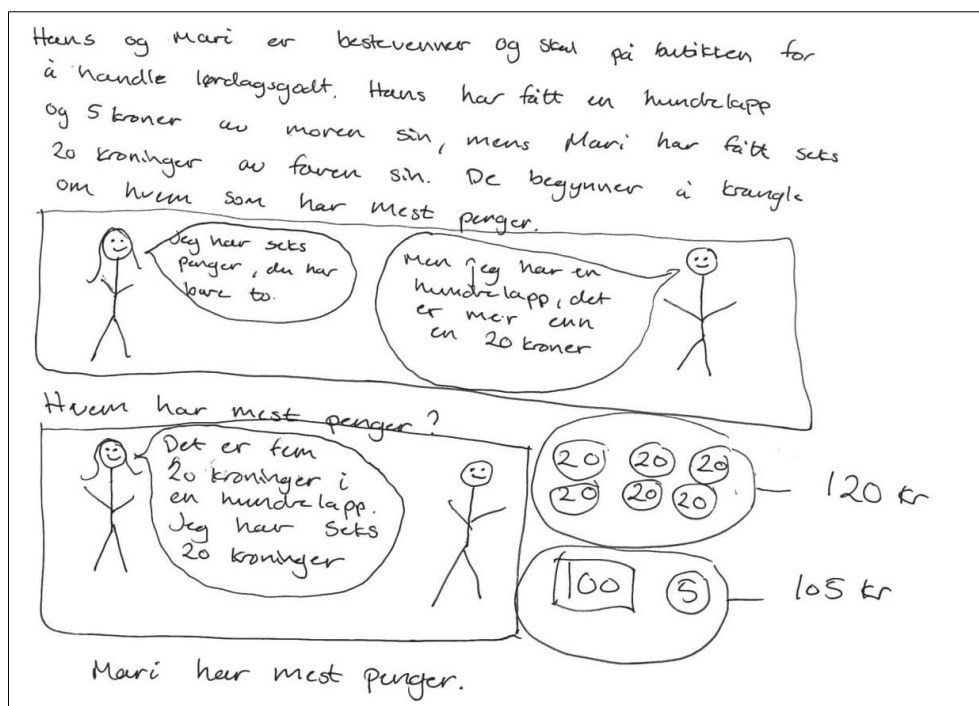 Hans og Mari er bestevenner og skal på butikken for
å handle lørdagsgodt. Hans har fått en hundrelapp
og 5 kroner av moren sin, mens Mari har fått seks
20 kroninger av faren sin. De begynner å krangle
om hvem som har mest penger.
Jeg har seks
penger, du har
bare to.
Men jeg har en
hundrelapp, det
er meir enn
en 20 kroner
Hvem har mest penger?
Det er fem
20 kroninger i
en hundrelapp.
Jeg har seks
20 kroninger
20 20 20
20 20 20
120 kr
100 5
105 kr
Mari har mest penger.